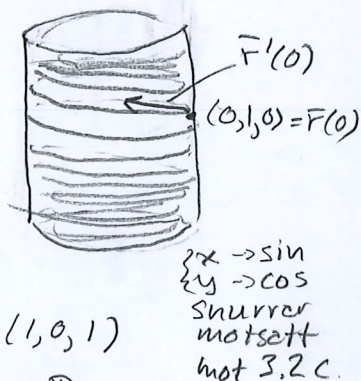 r̄'(0)
(0,1,0) = r̄(0)
{x → sin
{y → cos
snurrar
motsatt
mot 3.2 c.
(1,0,1)